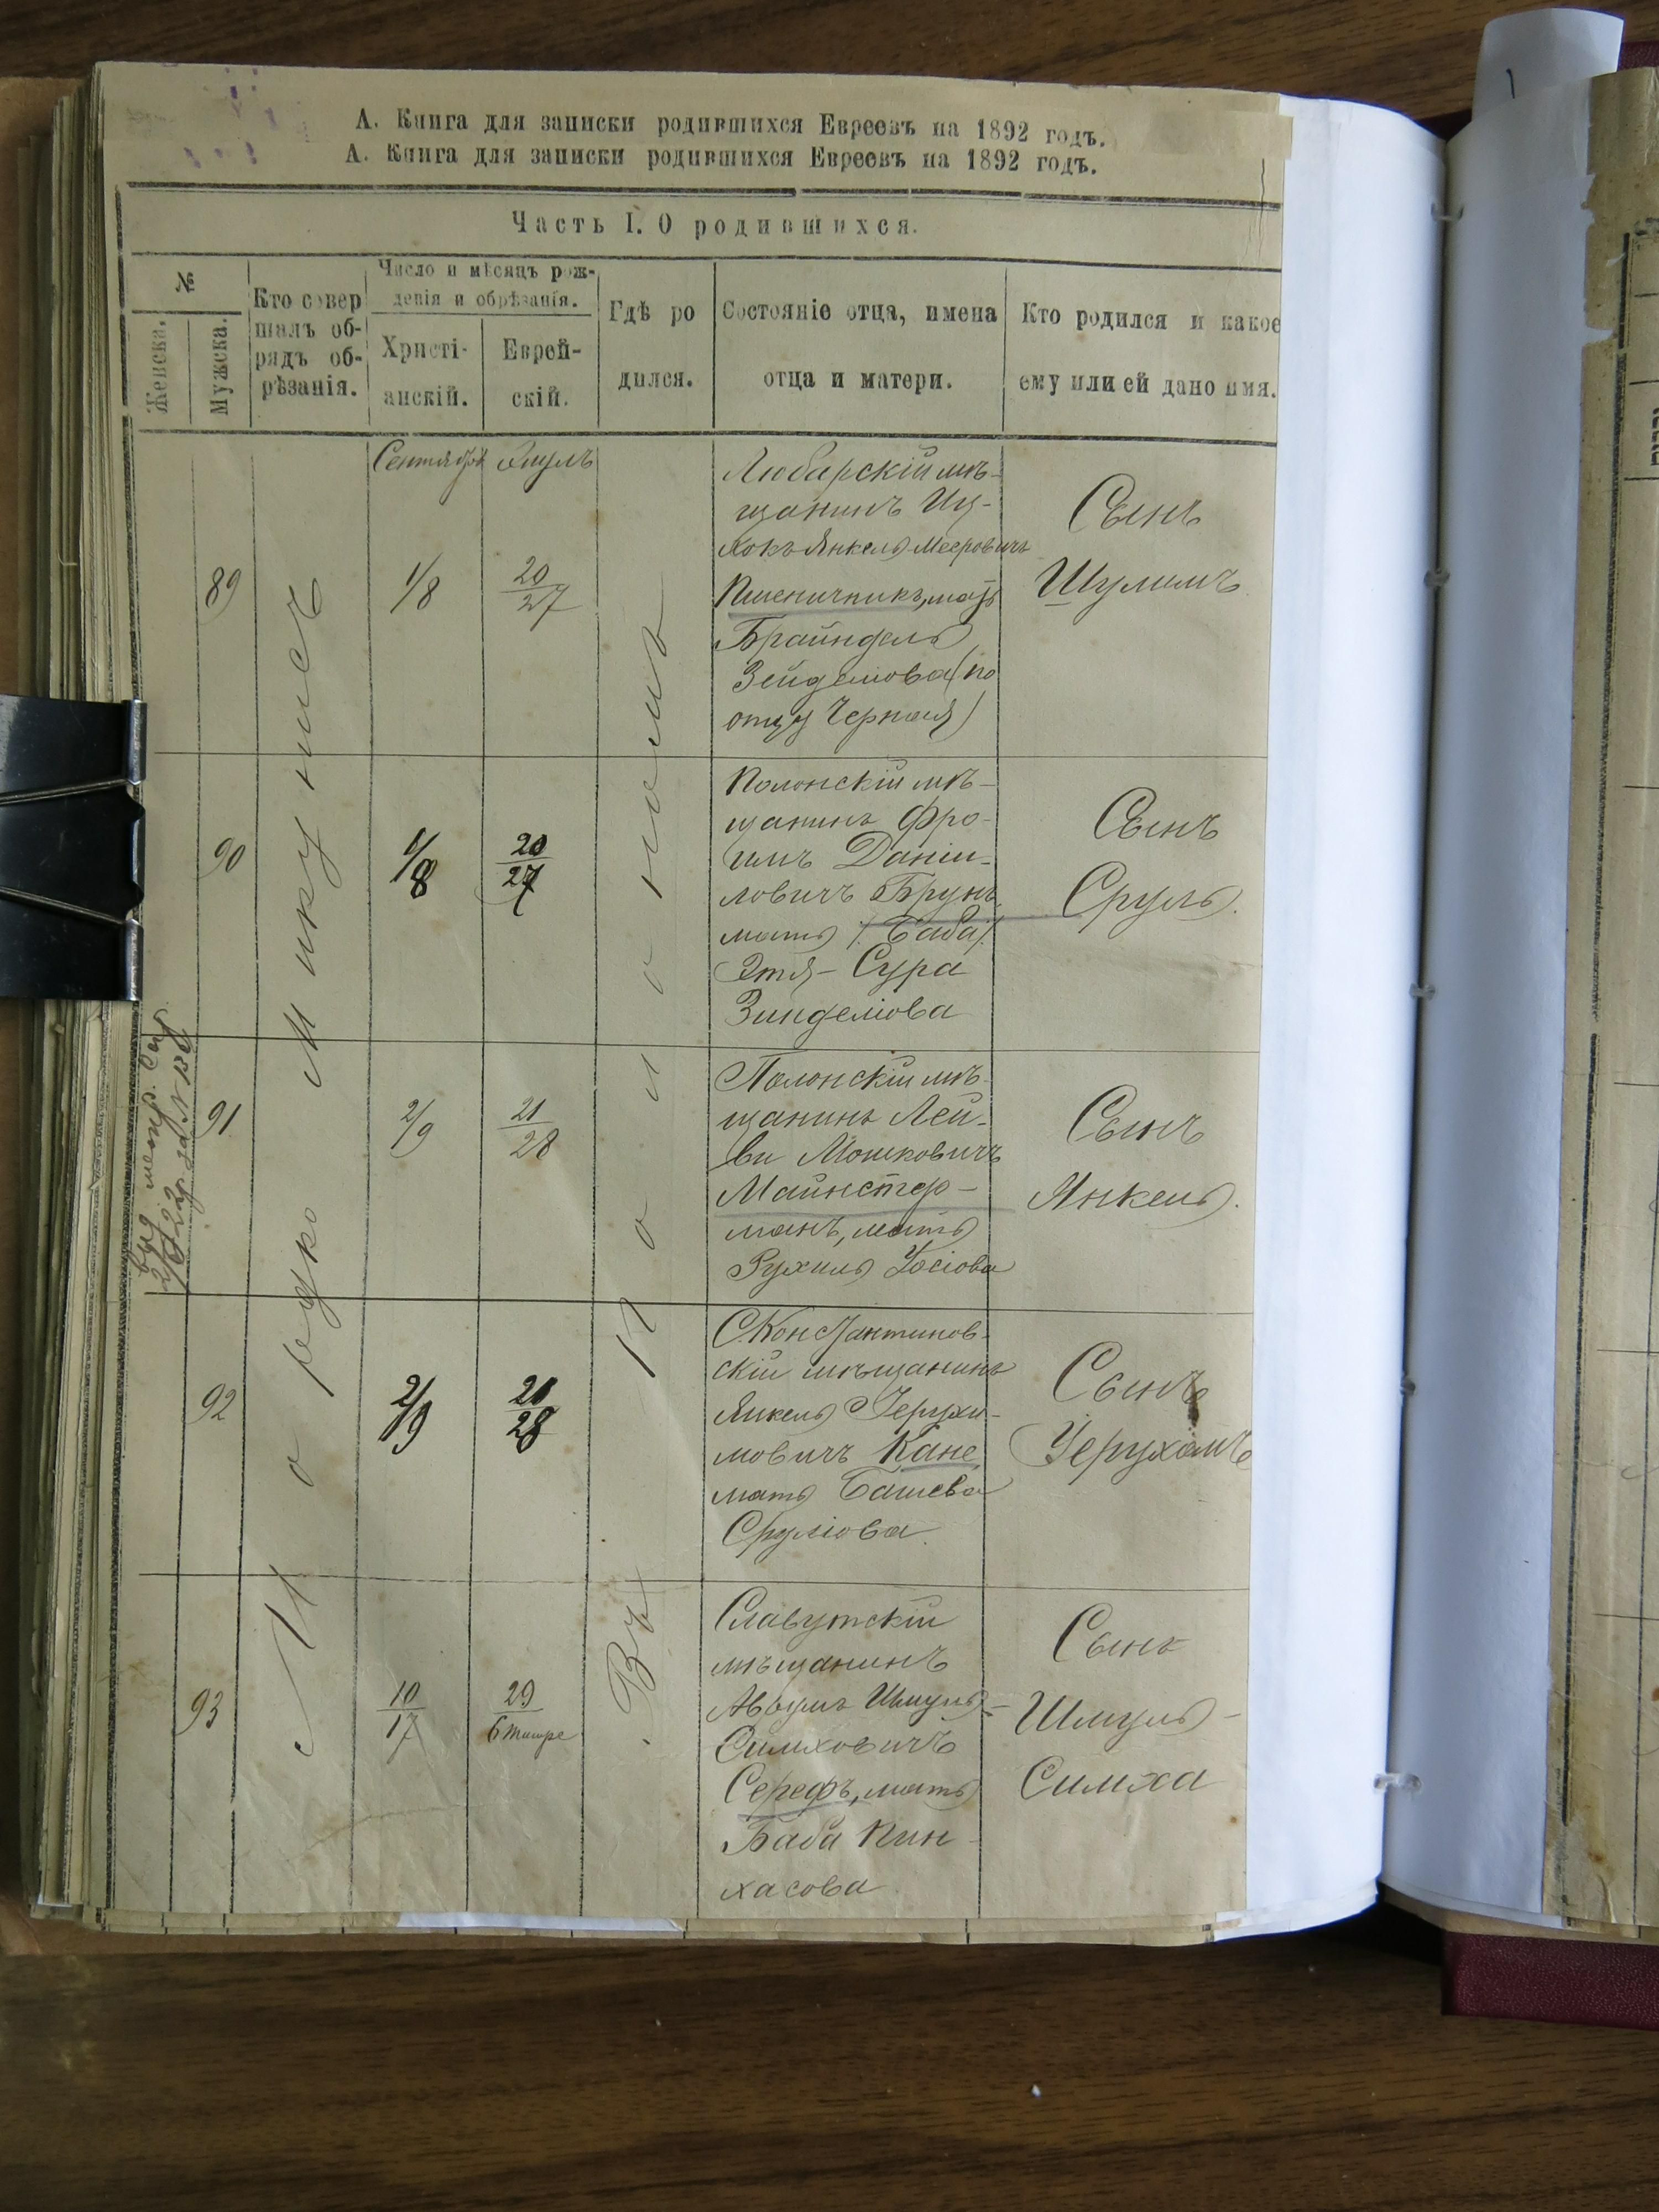 А. Книга для записки родившихся Евреевъ на 1892 годъ.
А. Книга для записки родившихся Евреевъ на 1892 годъ.
Часть I. О родившихся.
№
Женска.
Мужска.
Кто совер
шалъ об-
рядъ об-
рѣзанія.
Число и мѣсяцъ рож-
денія и обрѣзанія.
Христі-
анскій.
Еврей-
скій.
Гдѣ ро
дился.
Состояніе отца, имена
отца и матери.
Кто родился и какое
ему или ей дано имя.
Сентября
Элулъ
Мордко Микунисъ
Въ Полонномъ
89
1/8
20/27
Любарскій мѣ-
щанинъ Иц-
хокъ Янкель Мееровичъ
Пшеничникъ, мать
Брайндель
Зейделіова (по
отцу Черная)
Сынъ
Шулимъ
90
1/8
20/27
Полонскій мѣ-
щанинъ Фро-
имъ Даніи-
ловичъ Брунъ
мать /: Баба /:
Этя-Сура
Зинделіова
Сынъ
Сруль.
91
2/9
21/28
Полонскій мѣ-
щанинъ Лей-
ви Мошковичъ
Майнстер-
манъ, мать
Рухиль Іосіова
Сынъ
Янкель.
92
2/9
21/28
С. Константинов-
скій мѣщанинъ
Янкель Іерухи-
мовичъ Кане
мать Башева
Сруліова
Сынъ
Іерухамъ
93
10/17
29/6 Тишре
Славутскій
мѣщанинъ
Аврумъ Шмуль-
Симховичъ
Серефъ, мать
Баба Пин-
хасова
Сынъ
Шмуль-
Симха